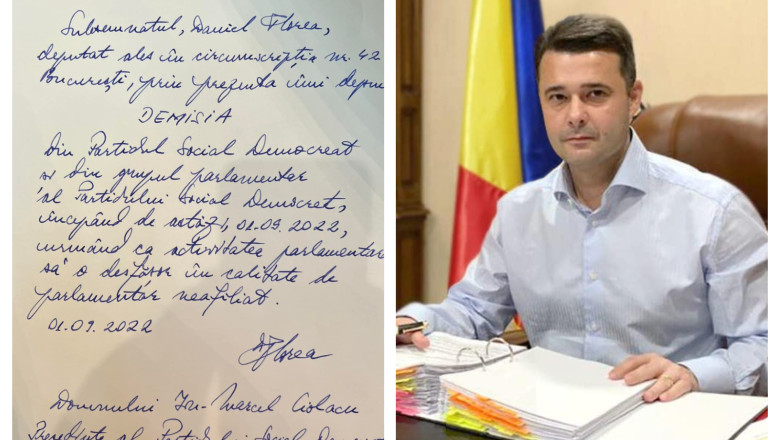 Subsemnatul, Daniel Florea,
deputat ales în circumscripția nr. 42
București, prin prezenta îmi depun
DEMISIA
din Partidul Social Democrat
și din grupul parlamentar
al Partidului Social Democrat,
începând de astăzi, 01.09.2022,
urmând ca activitatea parlamentară
să o desfășor în calitate de
parlamentar neafiliat.
01.09.2022
DFlorea
Domnului Ion-Marcel Ciolacu
Președinte al Partidului Social Democrat